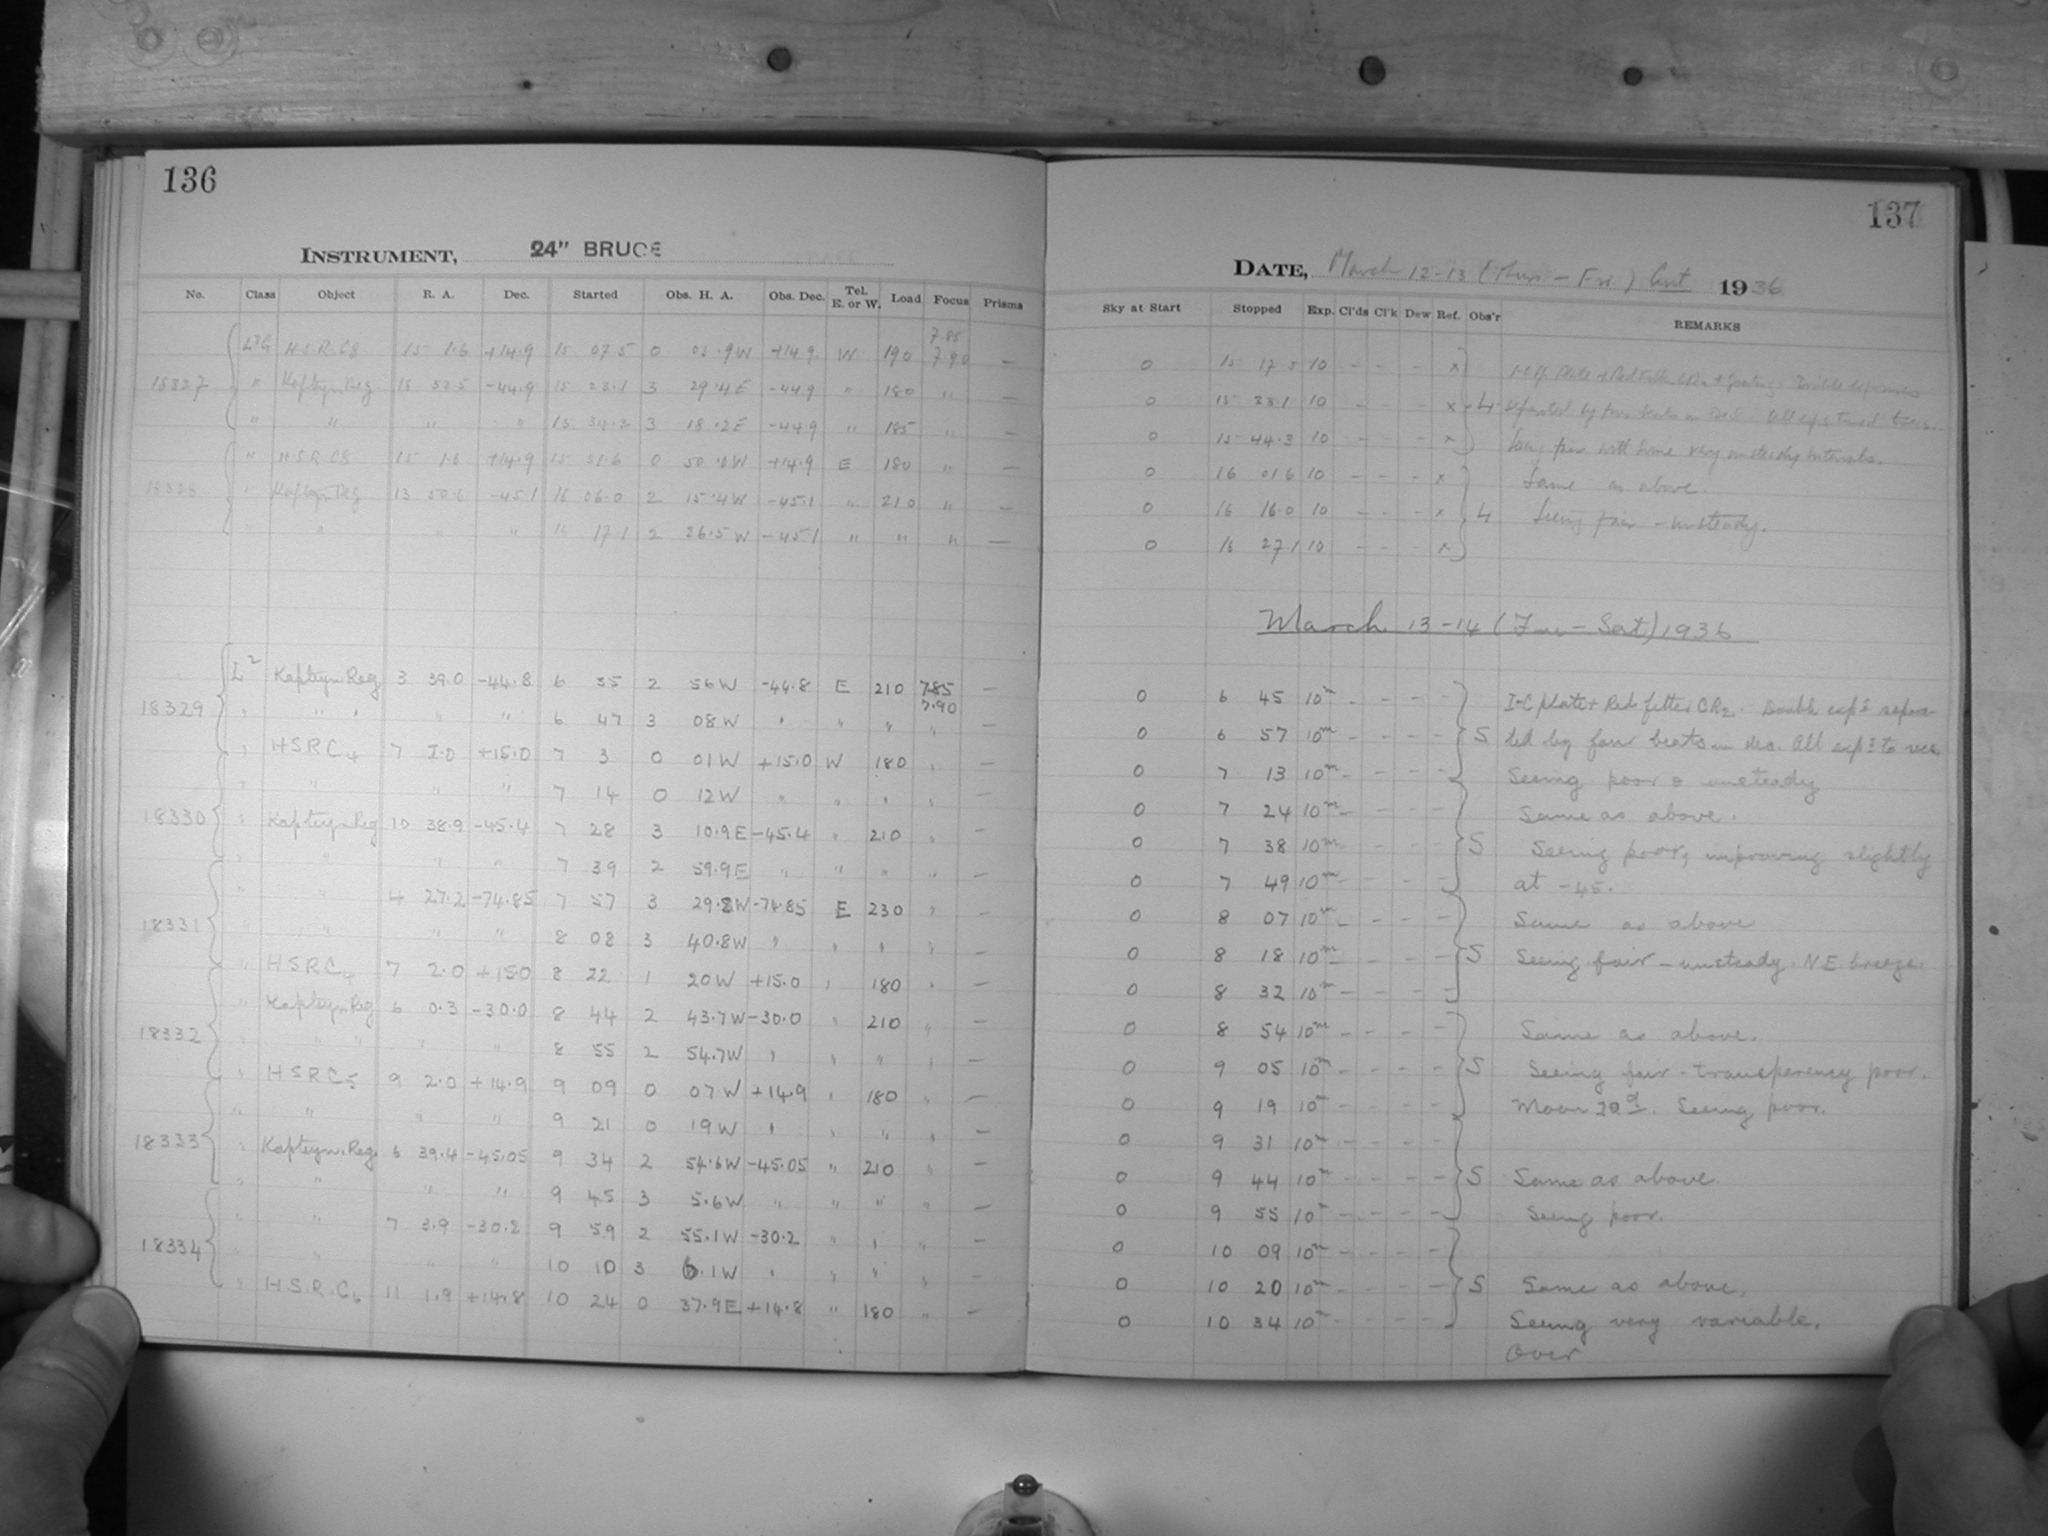 136
INSTRUMENT, 24" BRUCE
No. Class Object R. A. Dec. Started Obs. H. A. Obs. Dec. Tel. E. or W. Load Focus Prisms
7.85
H.S.R.C8 15 1.6 +14.9 15 07.5 0 W +14.9 W 190 7.90 —
18327 " Kapteyn Reg. -44.9 15 23.1 3 29.4E -44.9 " 180 " —
" " " " 15 34.3 3 18.2E -44.9 " 185 " —
" H.S.R.C8 15 1.6 +14.9 15 51.6 0 W +14.9 E 180 " —
18328 " Kapteyn Reg 13 50.6 -45.1 16 06.0 2 15.4W -45.1 " 210 " —
" " " " 16 17.1 2 26.5W -45.1 " " " —
L2 Kapteyn Reg. 3 39.0 -44.8 6 35 2 56W -44.8 E 210 7.85 —
18329 " " " " " 6 47 3 08W " " " 7.90 —
" HSRC4 7 1.0 +15.0 7 3 0 01W +15.0 W 180 " —
" " " " 7 14 0 12W " " " " —
18330 " Kapteyn Reg 10 38.9 -45.4 7 28 3 10.9E -45.4 " 210 " —
" " " " 7 39 2 59.9E " " " " —
" " 4 27.2 -74.85 7 57 3 29.8W -74.85 E 230 " —
18331 " " " " " 8 08 3 40.8W " " " " —
" HSRC4 7 2.0 +15.0 8 22 1 20W +15.0 " 180 " —
" Kapteyn Reg 6 0.3 -30.0 8 44 2 43.7W -30.0 " 210 " —
18332 " " " " " 8 55 2 54.7W " " " " —
" HSRC5 9 2.0 +14.9 9 09 0 07W +14.9 " 180 " —
" " " " 9 21 0 19W " " " " —
18333 " Kapteyn Reg. 6 39.4 -45.05 9 34 2 54.6W -45.05 " 210 " —
" " " 9 45 3 5.6W " " " " —
" " 7 3.9 -30.2 9 59 2 55.1W -30.2 " " " —
18334 " " " " 10 10 3 6.1W " " " " —
" H.S.R.C6 11 1.9 +14.8 10 24 0 37.9E +14.8 " 180 " —
137
DATE, March 12-13 (Thur - Fri) Cont 1936
Sky at Start Stopped Exp. Cl'ds Cl'k Dew Ref. Obs'r REMARKS
0 15 17.5 10 - - - x
0 15 33.1 10 - - - x
0 15 44.3 10 - - - x Seeing fair with some very unsteady intervals.
0 16 01.6 10 - - - x Same as above.
0 16 16.0 10 - - - x Seeing fair - unsteady.
0 16 27.1 10 - - - x
March 13-14 (Fri - Sat) 1936
0 6 45 10m - - - - I-C plate + Red filter CR2. Double exps separa
0 6 57 10m - - - - S ted by four beats in dec. All exps to
0 7 13 10m - - - - Seeing poor & unsteady
0 7 24 10m - - - - Same as above.
0 7 38 10m - - - - S Seeing poor, improving slightly
0 7 49 10m - - - - at -45.
0 8 07 10m - - - - Same as above
0 8 18 10m - - - - S Seeing fair - unsteady. N.E. breeze.
0 8 32 10m - - - -
0 8 54 10m - - - - Same as above.
0 9 05 10m - - - - S Seeing fair - transparency poor.
0 9 19 10m - - - - Moon 20d. Seeing poor.
0 9 31 10m - - - -
0 9 44 10m - - - - S Same as above.
0 9 55 10m - - - - Seeing poor.
0 10 09 10m - - - -
0 10 20 10m - - - - S Same as above.
0 10 34 10m - - - - Seeing very variable.
Over